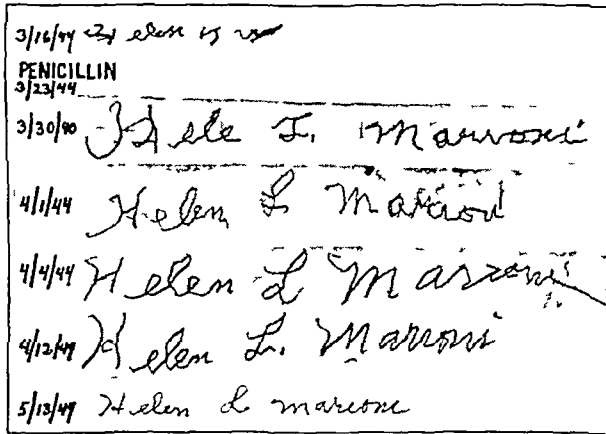 3/16/44 elen
PENICILLIN
3/23/44
3/30/40 Hele L. Marvoni
4/1/44 Helen L Marioni
4/4/44 Helen L Marzoni
4/12/49 Helen L. Marroni
5/13/49 Helen L marconi